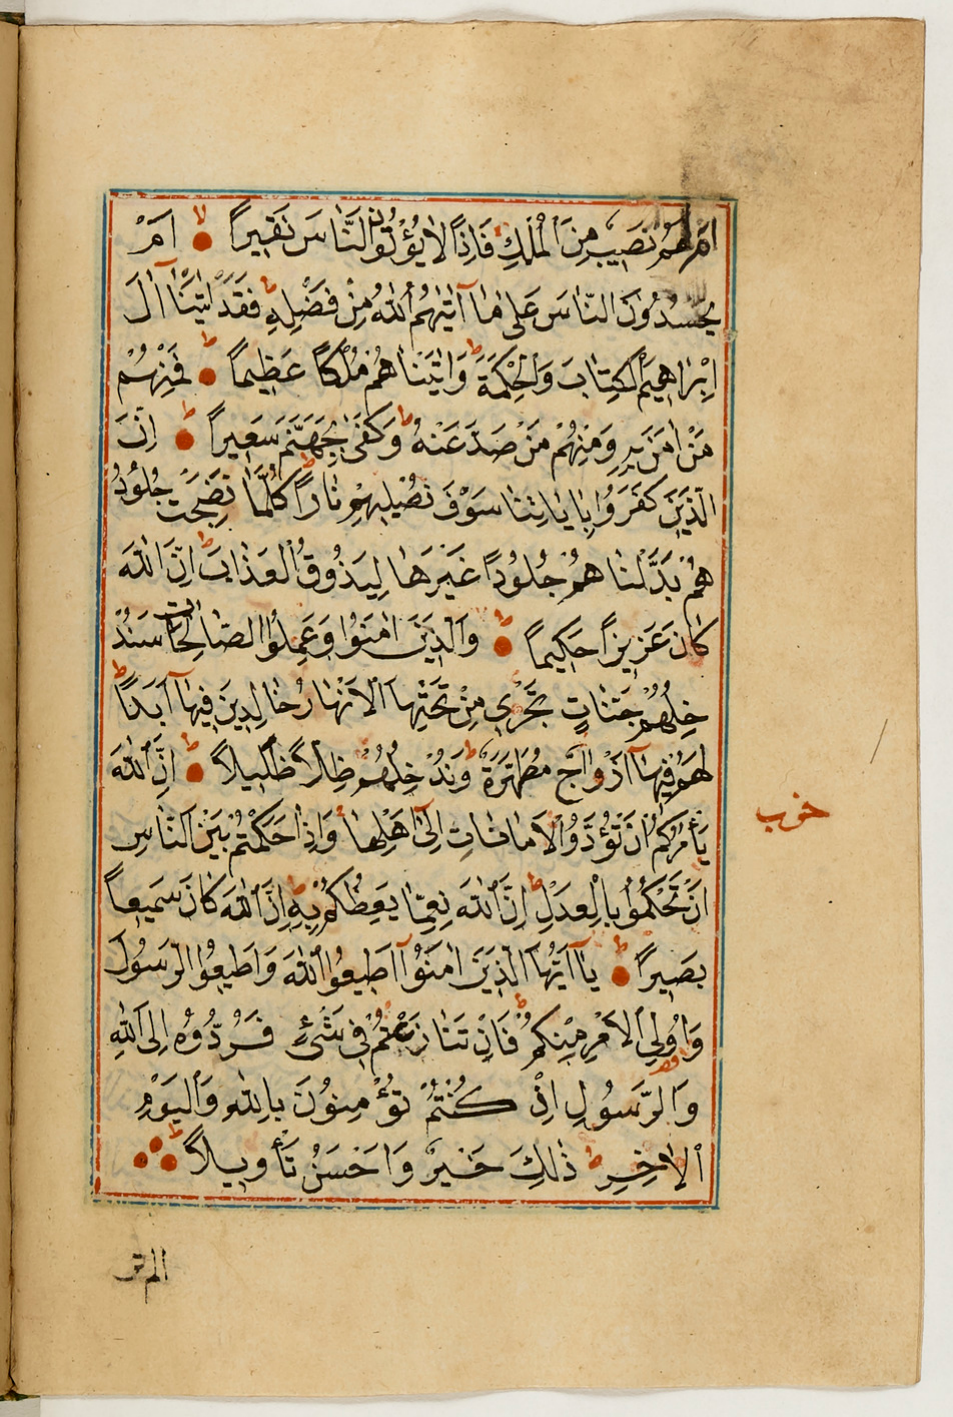 اَمْ لَهُمْ نَصِيبٌ مِنَ الْمُلْكِ فَاِذًا لَا يُؤْتُونَ النَّاسَ نَقِيرًا لا اَمْ
يَحْسُدُونَ النَّاسَ عَلٰى مَا آتٰيهُمُ اللّٰهُ مِنْ فَضْلِهِ ط فَقَدْ اٰتَيْنَا اٰلَ
اِبْرٰاهِيمَ الْكِتَابَ وَالْحِكْمَةَ ط وَاٰتَيْنَاهُمْ مُلْكًا عَظِيمًا ط فَمِنْهُمْ
مَنْ اٰمَنَ بِهِ وَمِنْهُمْ مَنْ صَدَّ عَنْهُ ط وَكَفٰى بِجَهَنَّمَ سَعِيرًا ط اِنَّ
الَّذِينَ كَفَرُوا بِاٰيَاتِنَا سَوْفَ نُصْلِيهِمْ نَارًا ط كُلَّمَا نَضِجَتْ جُلُودُ
هُمْ بَدَّلْنَا هُمْ جُلُودًا غَيْرَهَا لِيَذُوقُ الْعَذَابَ ط اِنَّ اللّٰهَ
كَانَ عَزِيزًا حَكِيمًا ط وَالَّذِينَ اٰمَنُوا وَعَمِلُوا الصَّالِحَاتِ سَنُدْ
خِلُهُمْ جَنَّاتٍ تَجْرِي مِنْ تَحْتِهَا الْاَنْهَارُ خَالِدِينَ فِيهَا آ اَبَدًا ط
لَهُمْ فِيهَا آ اَزْوَاجٌ مُطَهَّرَةٌ ط وَنُدْخِلُهُمْ ظِلًّا ظَلِيلًا ط اِنَّ اللّٰهَ
يَأْمُرُكُمْ اَنْ تُؤَدُّوا الْاَمَانَاتِ اِلٰى آ اَهْلِهَا وَاِذَا حَكَمْتُمْ بَيْنَ النَّاسِ
اَنْ تَحْكُمُوا بِالْعَدْلِ ط اِنَّ اللّٰهَ نِعِمَّا يَعِظُكُمْ بِهِ ط اِنَّ اللّٰهَ كَانَ سَمِيعًا
بَصِيرًا ط يَا آ اَيُّهَا الَّذِينَ اٰمَنُوا آ اَطِيعُوا اللّٰهَ وَاَطِيعُوا الرَّسُولَ
وَاُولِي الْاَمْرِ مِنْكُمْ ط فَاِنْ تَنَازَعْتُمْ فِي شَىْءٍ فَرُدُّوهُ اِلَى اللّٰهِ
وَالرَّسُولِ اِنْ كُنْتُمْ تُؤْمِنُونَ بِاللّٰهِ وَالْيَوْمِ
الْاٰخِرِ ط ذٰلِكَ خَيْرٌ وَاَحْسَنُ تَأْوِيلًا ط
حزب
الم تر